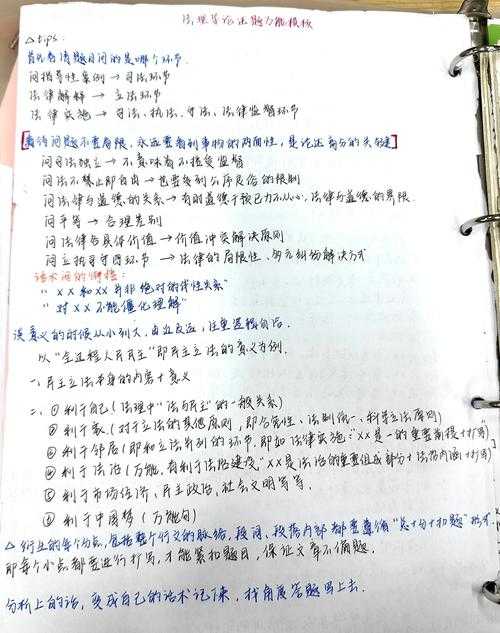 法理学论述题万能模板
△tips:
首先看清题目问的是哪个环节.
问指导性案例 → 司法环节
法律解释 → 立法环节
法律实施 → 司法、执法、守法、法律监督环节
看待问题不要局限,永远要看到事物的两面性,是论述高分的关键】
问司法独立 → 不意味着不接受监督
问法不禁止即自由 → 也要受到公序良俗的限制
问法律与道德的关系 → 有时道德干预已力不从心,法律与道德的界限.
问平等 → 合理差别
问法律各具体价值 → 价值冲突解决原则
问立执司守四环节 → 法律的局限性、多元纠纷解决方式
话术词的锤炼:
“XX和XX并非绝对的线性关系”
“对XX不能僵化理解”
谈意义的时候从小到大,由近及远,注重逻辑自洽.
以“全过程人民民主”即民主立法的意义为例.
一、民主立法本身的内容+意义
二、①利于自己(法理中“法与民主”的一般关系)
②利于家(对于立法的其他原则,即合宪性、法制统一、科学立法原则)
③利于邻居(即和立法并列的环节,即如法律实施:“XX是一的重要前提+扩写)
④利于法治(万能,有利于法治建设“XX是法治的重要组成部分+法治内涵+扩写)
⑤利于市场经济,民主政治,社会文明等等.
⑥利于中国梦(万能句)
△衍生的每个分点,包括整个行文的脉络,段间、段落内部都要遵循“总+分+扣题”格式.
即每个小点都要进行扩写,才能紧扣题目,保证文章不偏题.
分析上的话,变成自己的话术记下来,找角度答题写上去.